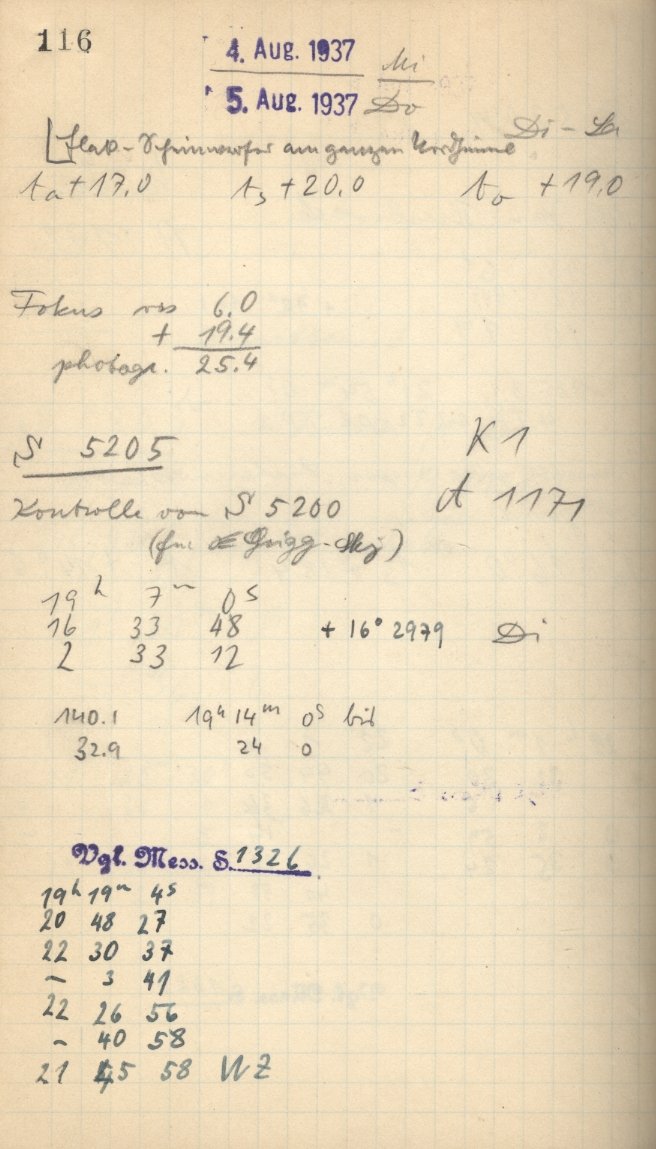 116
4. Aug. 1937 Mi
5. Aug. 1937 Do
Di - La
Flak-Scheinwerfer am ganzen Nordhimmel
ta + 17.0 ts + 20.0 to + 19.0
Fokus vis 6.0
+ 19.4
photogr. 25.4
S 5205 K 1
Kontrolle von S 5200 A 1171
(für Grigg-Skj)
19h 7m 0s
16 33 48 + 16° 2979 Di
2 33 12
140.1 19h 14m 0s bis
32.9 24 0
Vgl. Mess. S. 1326
19h 19m 4s
20 48 27
22 30 37
- 3 41
22 26 56
- 40 58
21 45 58 WZ